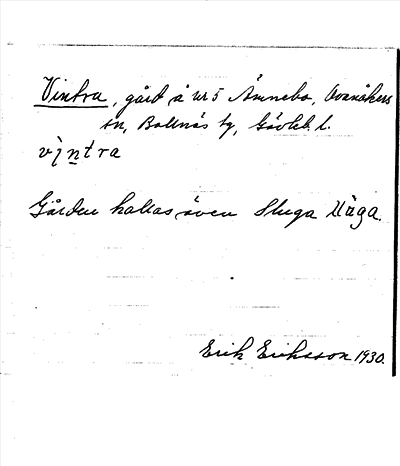 Vintra, gård å nr 5 Ämnebo, Ovanåkers
sn, Bollnäs tg, Gävleb. l.
vintra
Gården kallas även Sluga Väga.
Erik Eriksson 1930.